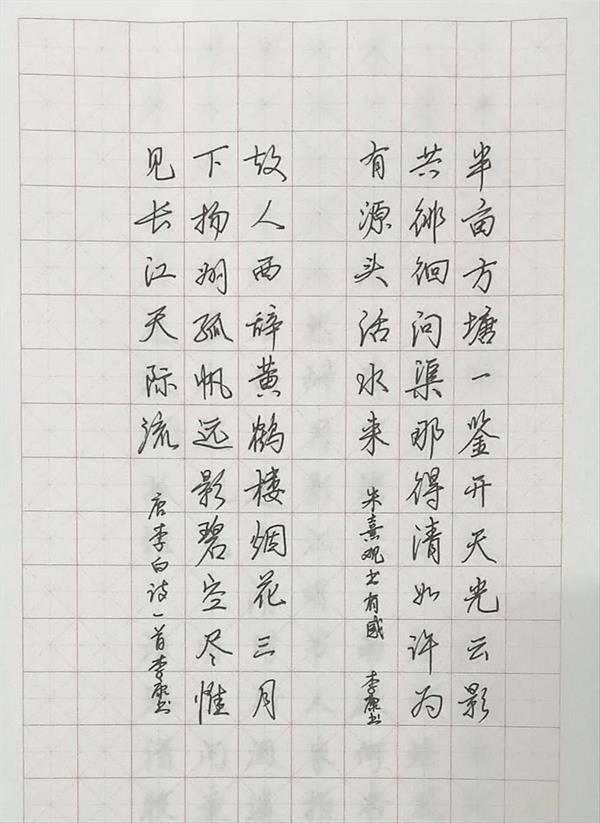 半亩方塘一鉴开天光云影
共徘徊问渠那得清如许为
有源头活水来 朱熹观书有感 李书
故人西辞黄鹤楼烟花三月
下扬州孤帆远影碧空尽惟
见长江天际流 唐李白诗一首李书